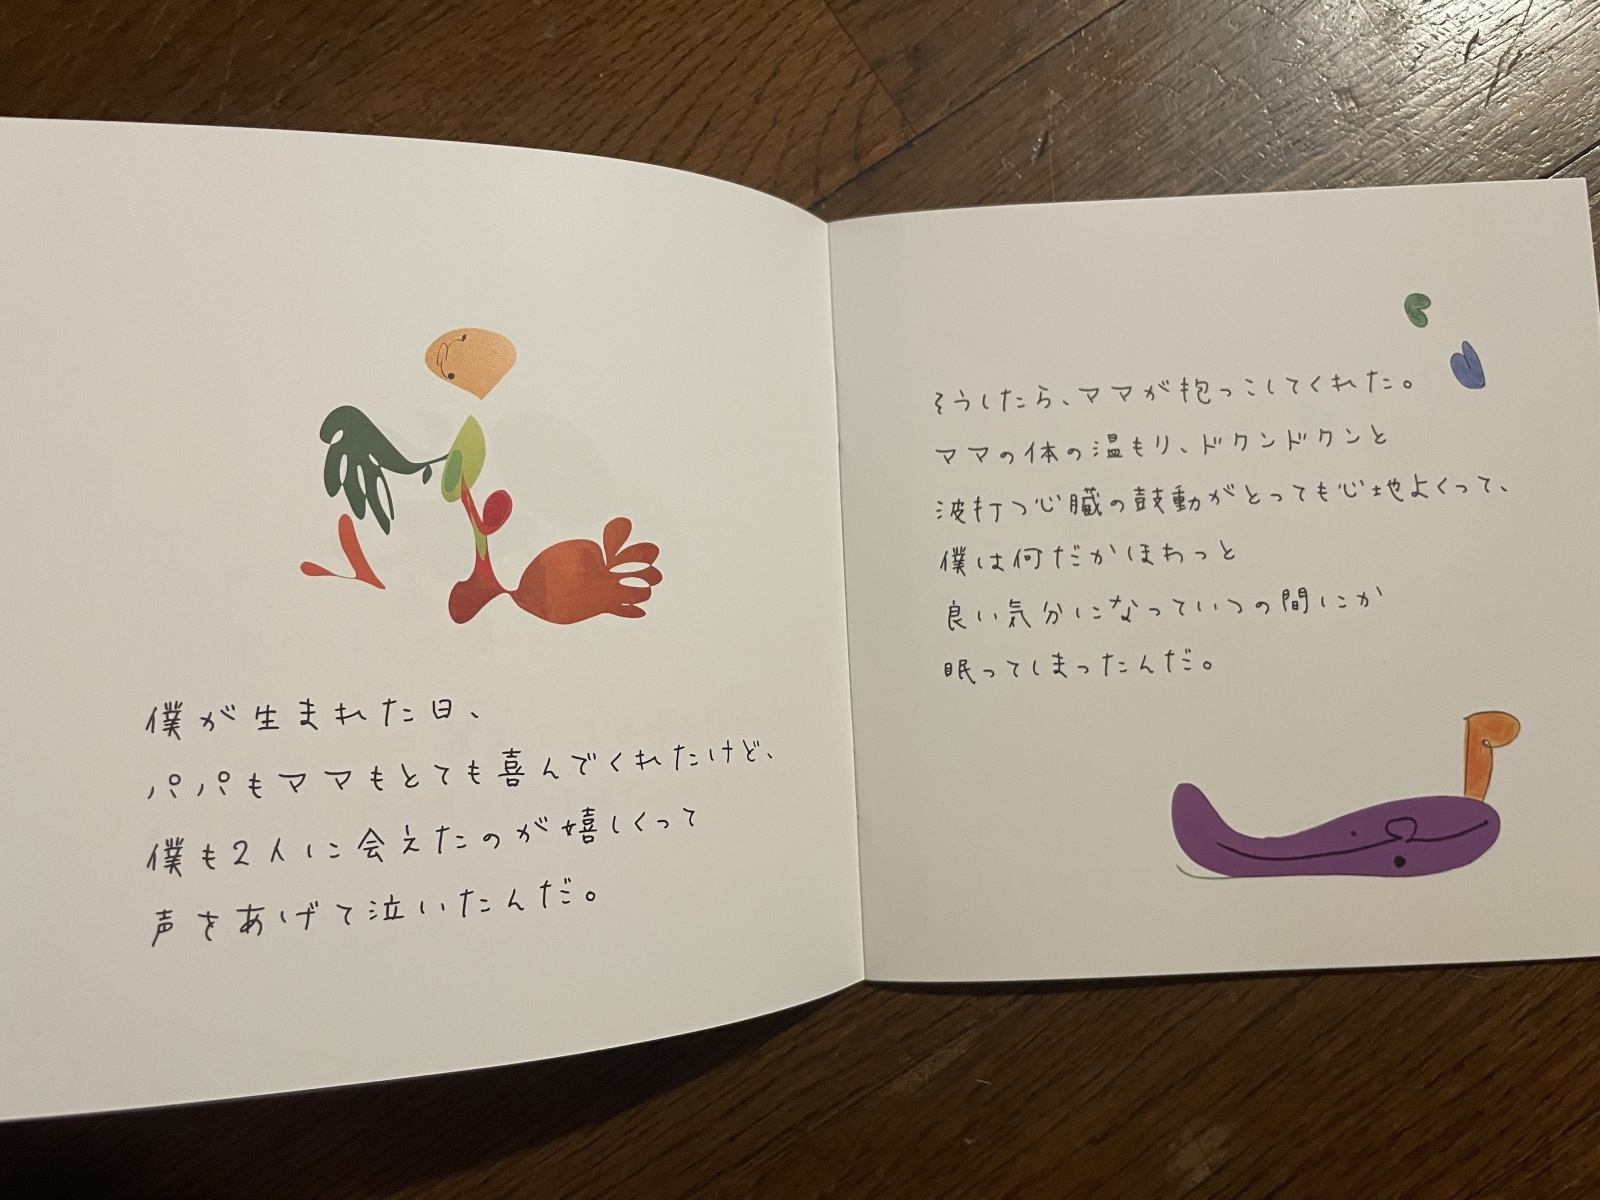 僕が生まれた日、
パパもママもとても喜んでくれたけど、
僕も2人に会えたのが嬉しくって
声をあげて泣いたんだ。
そうしたら、ママが抱っこしてくれた。
ママの体の温もり、ドクンドクンと
波打つ心臓の鼓動がとっても心地よくって、
僕は何だかほわっと
良い気分になっていつの間にか
眠ってしまったんだ。